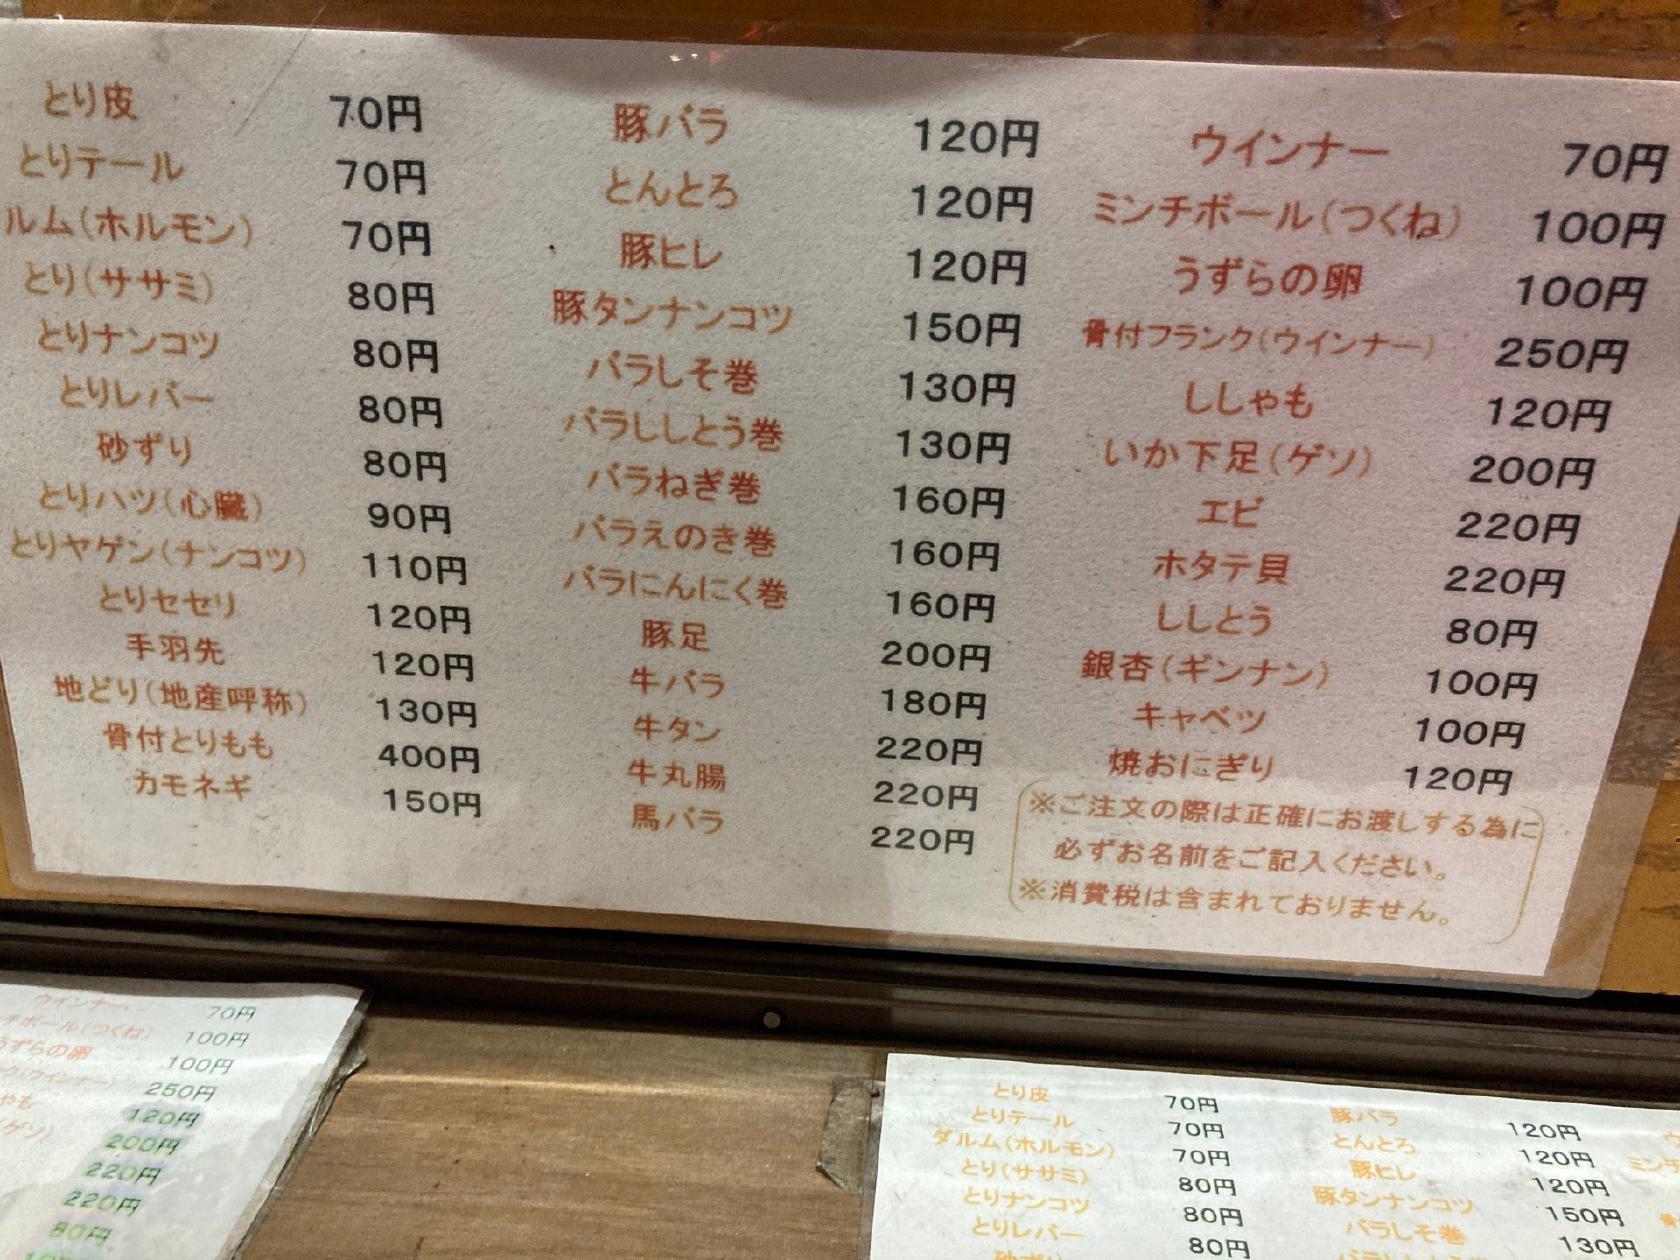 とり皮 70円
とりテール 70円
ルム(ホルモン) 70円
とり(ササミ) 80円
とりナンコツ 80円
とりレバー 80円
砂ずり 80円
とりハツ(心臓) 90円
とりヤゲン(ナンコツ) 110円
とりセセリ 120円
手羽先 120円
地どり(地産呼称) 130円
骨付とりもも 400円
カモネギ 150円
豚バラ 120円
とんとろ 120円
豚ヒレ 120円
豚タンナンコツ 150円
バラしそ巻 130円
バラししとう巻 130円
バラねぎ巻 160円
バラえのき巻 160円
バラにんにく巻 160円
豚足 200円
牛バラ 180円
牛タン 220円
牛丸腸 220円
馬バラ 220円
ウインナー 70円
ミンチボール(つくね) 100円
うずらの卵 100円
骨付フランク(ウインナー) 250円
ししゃも 120円
いか下足(ゲソ) 200円
エビ 220円
ホタテ貝 220円
ししとう 80円
銀杏(ギンナン) 100円
キャベツ 100円
焼おにぎり 120円
※ご注文の際は正確にお渡しする為に
必ずお名前をご記入ください。
※消費税は含まれておりません。
ウインナー 70円
チボール(つくね) 100円
うずらの卵 100円
ク(ウインナー) 250円
ゃも 120円
(ゲソ) 200円
220円
220円
80円
とり皮 70円
とりテール 70円
ダルム(ホルモン) 70円
とり(ササミ) 80円
とりナンコツ 80円
とりレバー 80円
砂ずり
豚バラ 120円
とんとろ 120円
豚ヒレ 120円
豚タンナンコツ 150円
バラしそ巻 130円
ミン